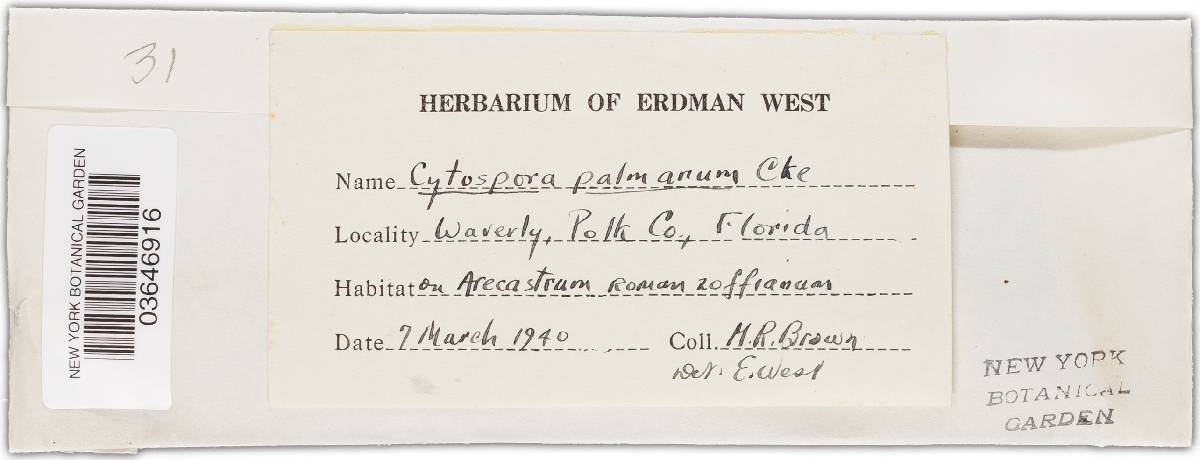 31
NEW YORK BOTANICAL GARDEN
03646916
HERBARIUM OF ERDMAN WEST
Name Cytospora palmarum Cke
Locality Waverly, Polk Co., Florida
Habitat on Arecastrum romanzoffianum
Date 7 March 1940 Coll. H.R. Brown
Det. E. West
NEW YORK
BOTANICAL
GARDEN